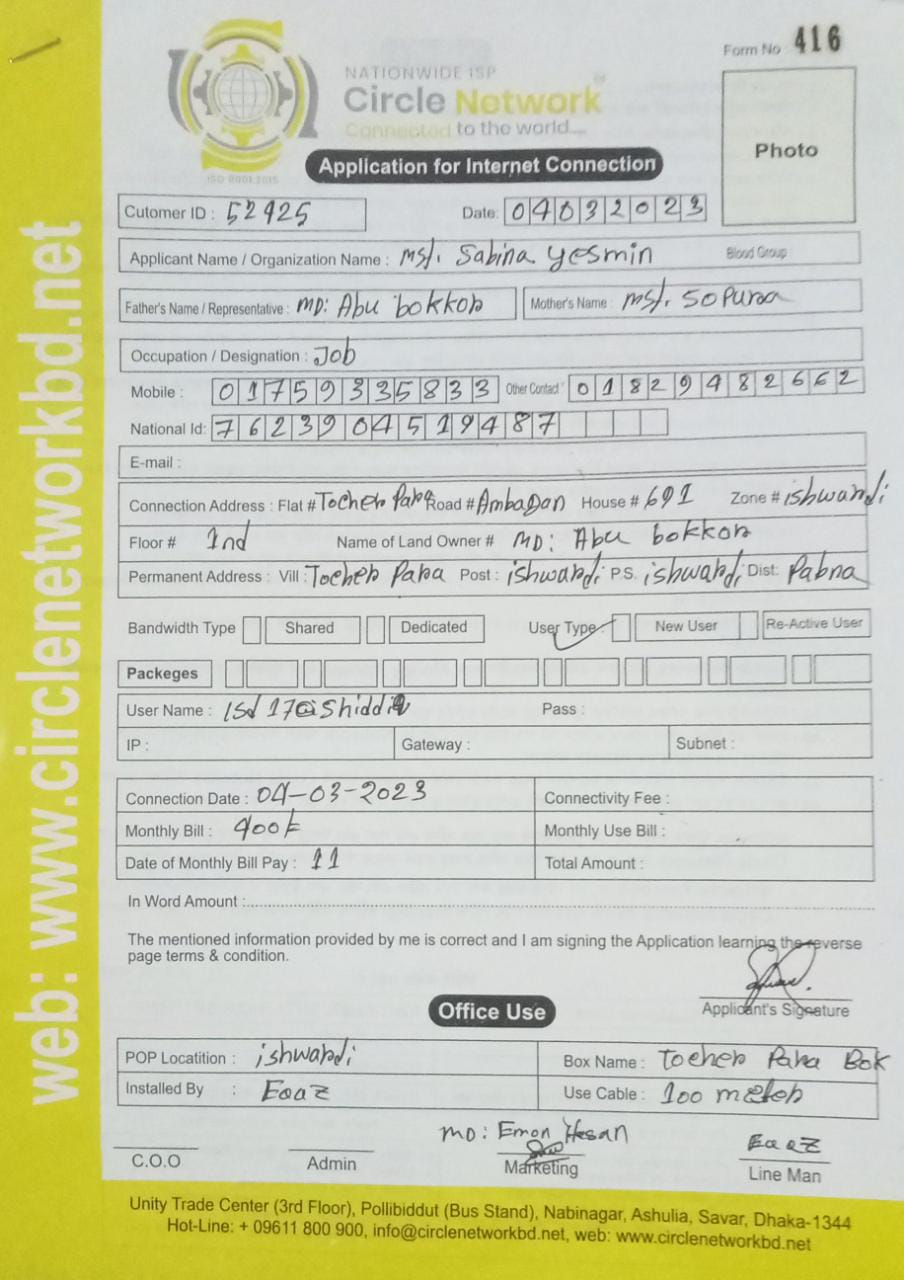 Form No 416
NATIONWIDE ISP
Circle Network
Connected to the world....
ISO 9001:2015
Photo
Application for Internet Connection
Cutomer ID : 52925 Date: 04032023
Applicant Name / Organization Name : Mst. Sabina yesmin Blood Group
Father's Name / Representative : MD: Abu bokkor Mother's Name : Mst. Sopura
Occupation / Designation : Job
Mobile : 01759335833 Other Contact : 01829482662
National Id: 7623904519487
E-mail :
Connection Address : Flat # Tocher Para Road # Ambagan House # 691 Zone # ishwardi
Floor # 1nd Name of Land Owner # MD: Abu bokkor
Permanent Address : Vill : Tocher Para Post : ishwardi P.S. ishwardi Dist: Pabna
Bandwidth Type Shared Dedicated User Type New User Re-Active User
Packeges
User Name : ISd 17@Shiddiq Pass :
IP : Gateway : Subnet :
Connection Date : 04-03-2023 Connectivity Fee :
Monthly Bill : 400 Monthly Use Bill :
Date of Monthly Bill Pay : 11 Total Amount :
In Word Amount :
The mentioned information provided by me is correct and I am signing the Application learning the reverse
page terms & condition.
Applicant's Signature
Office Use
POP Locatition : ishwardi Box Name : Tocher Para Box
Installed By : Eaaz Use Cable : 100 meter
MD: Emon Hasan Eaaz
C.O.O Admin Marketing Line Man
Unity Trade Center (3rd Floor), Pollibiddut (Bus Stand), Nabinagar, Ashulia, Savar, Dhaka-1344
Hot-Line: + 09611 800 900, info@circlenetworkbd.net, web: www.circlenetworkbd.net
web: www.circlenetworkbd.net